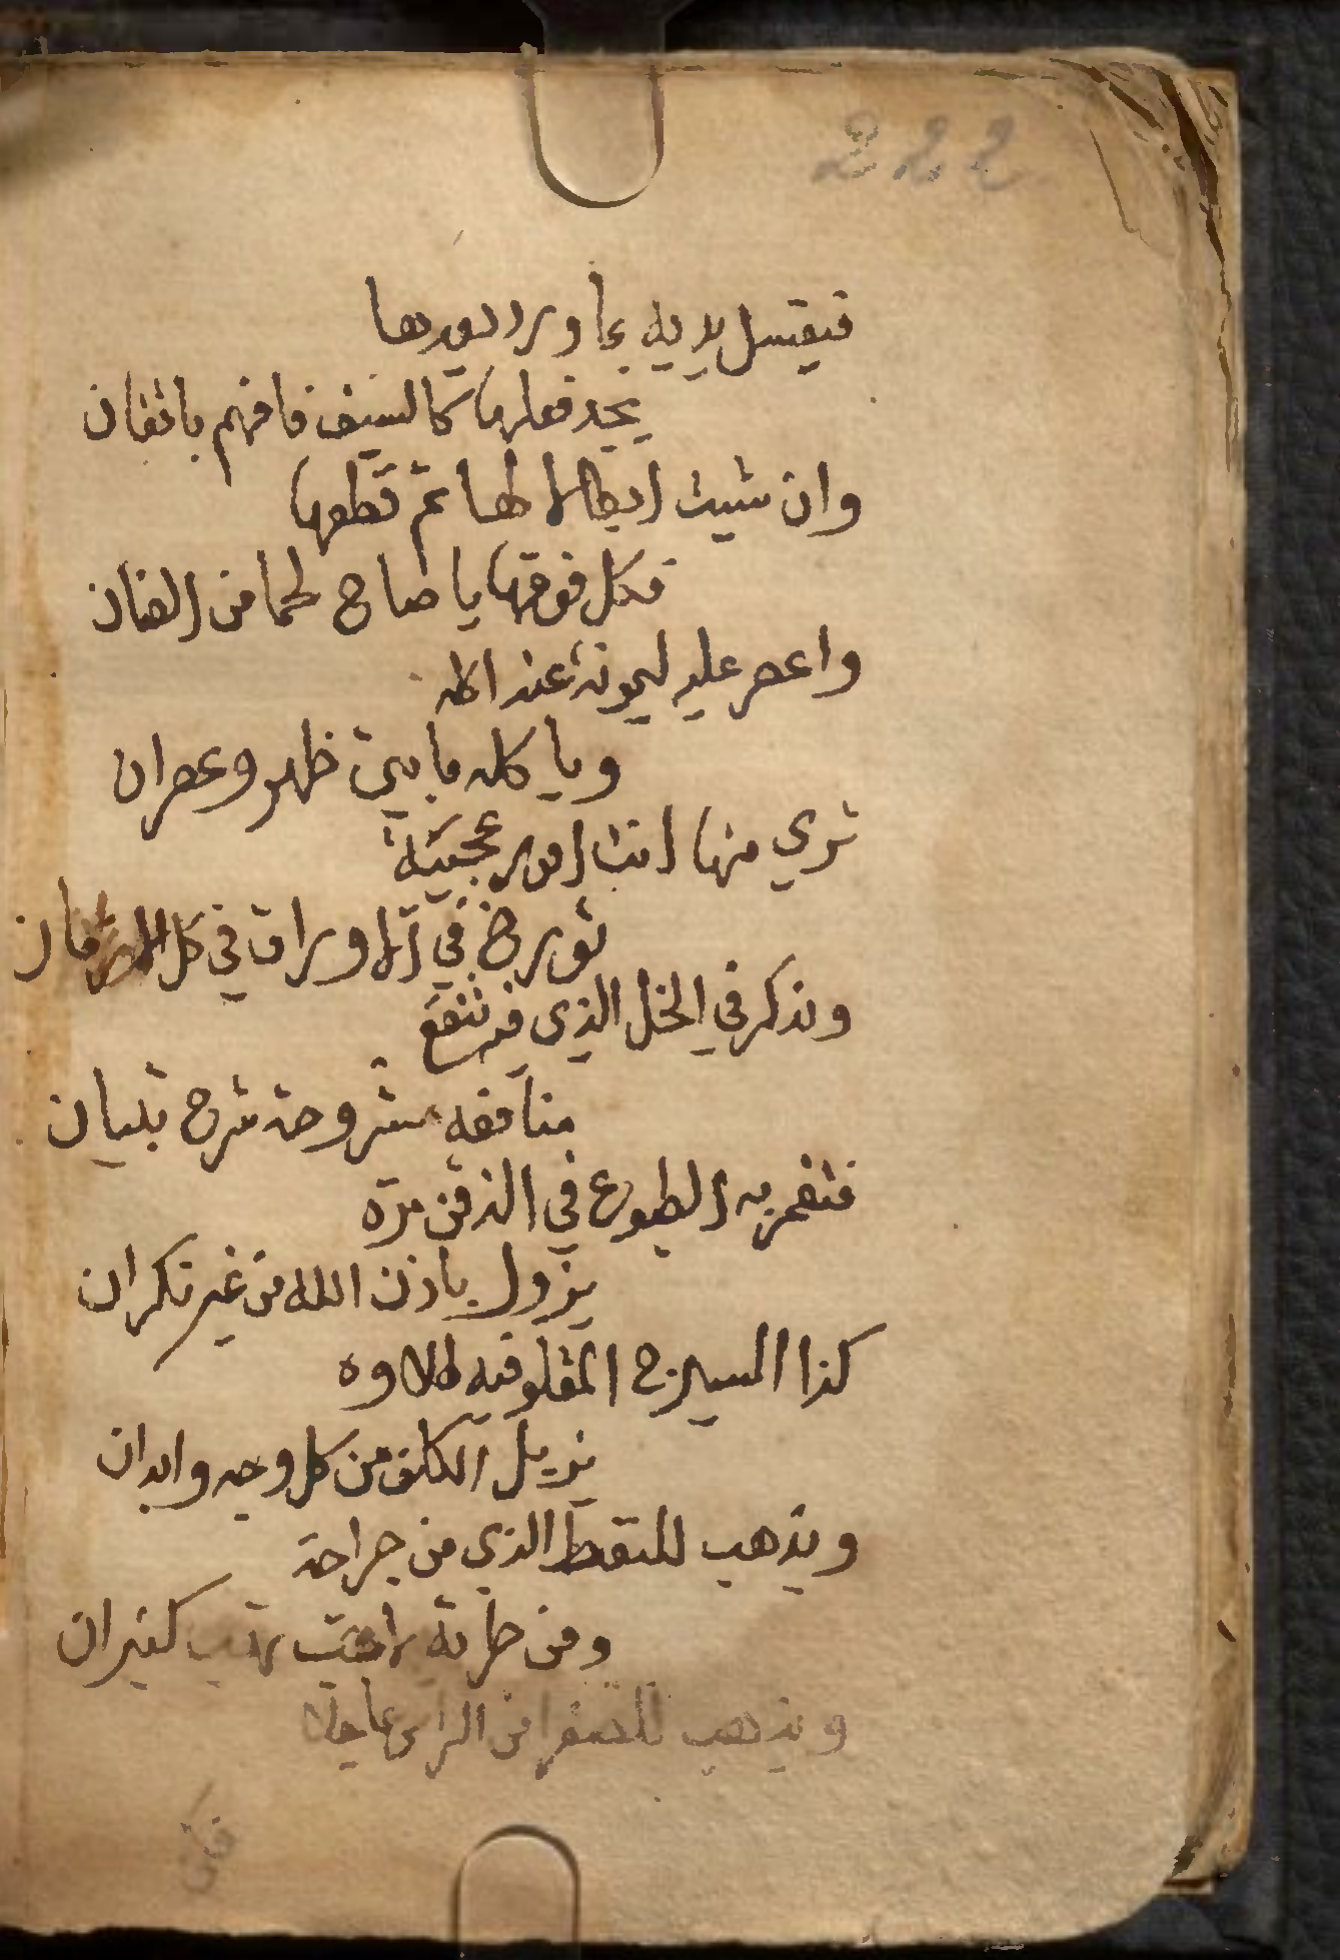 222
فيغتسل يديه بما ورد يعدها
يجد فعلها كالسيف فافهم باتقان
وان شيت ابطالا لها ثم قطعها
فكل فوقها يا صاح لحما من الضان
واعصر عليه ليمونة عند اكله
وياكله ما بين ظهر وعصران
تري منها انت امور عجيبة
تورخ في الاوراق في كل ازمان
ونذكر في الخل الذي فيه تنفع
منافعه مشروحة شرح تبيان
فتغمر به الطبوع في الذقن مرة
يزول باذن الله من غير نكران
كذا السيرج المقلو فيه طلاوه
يزيل الكلف من كل وجه وابدان
ويذهب للنقط الذي من جراحة
ومن حارقة كنيران
ويذهب من الراس عاجلا